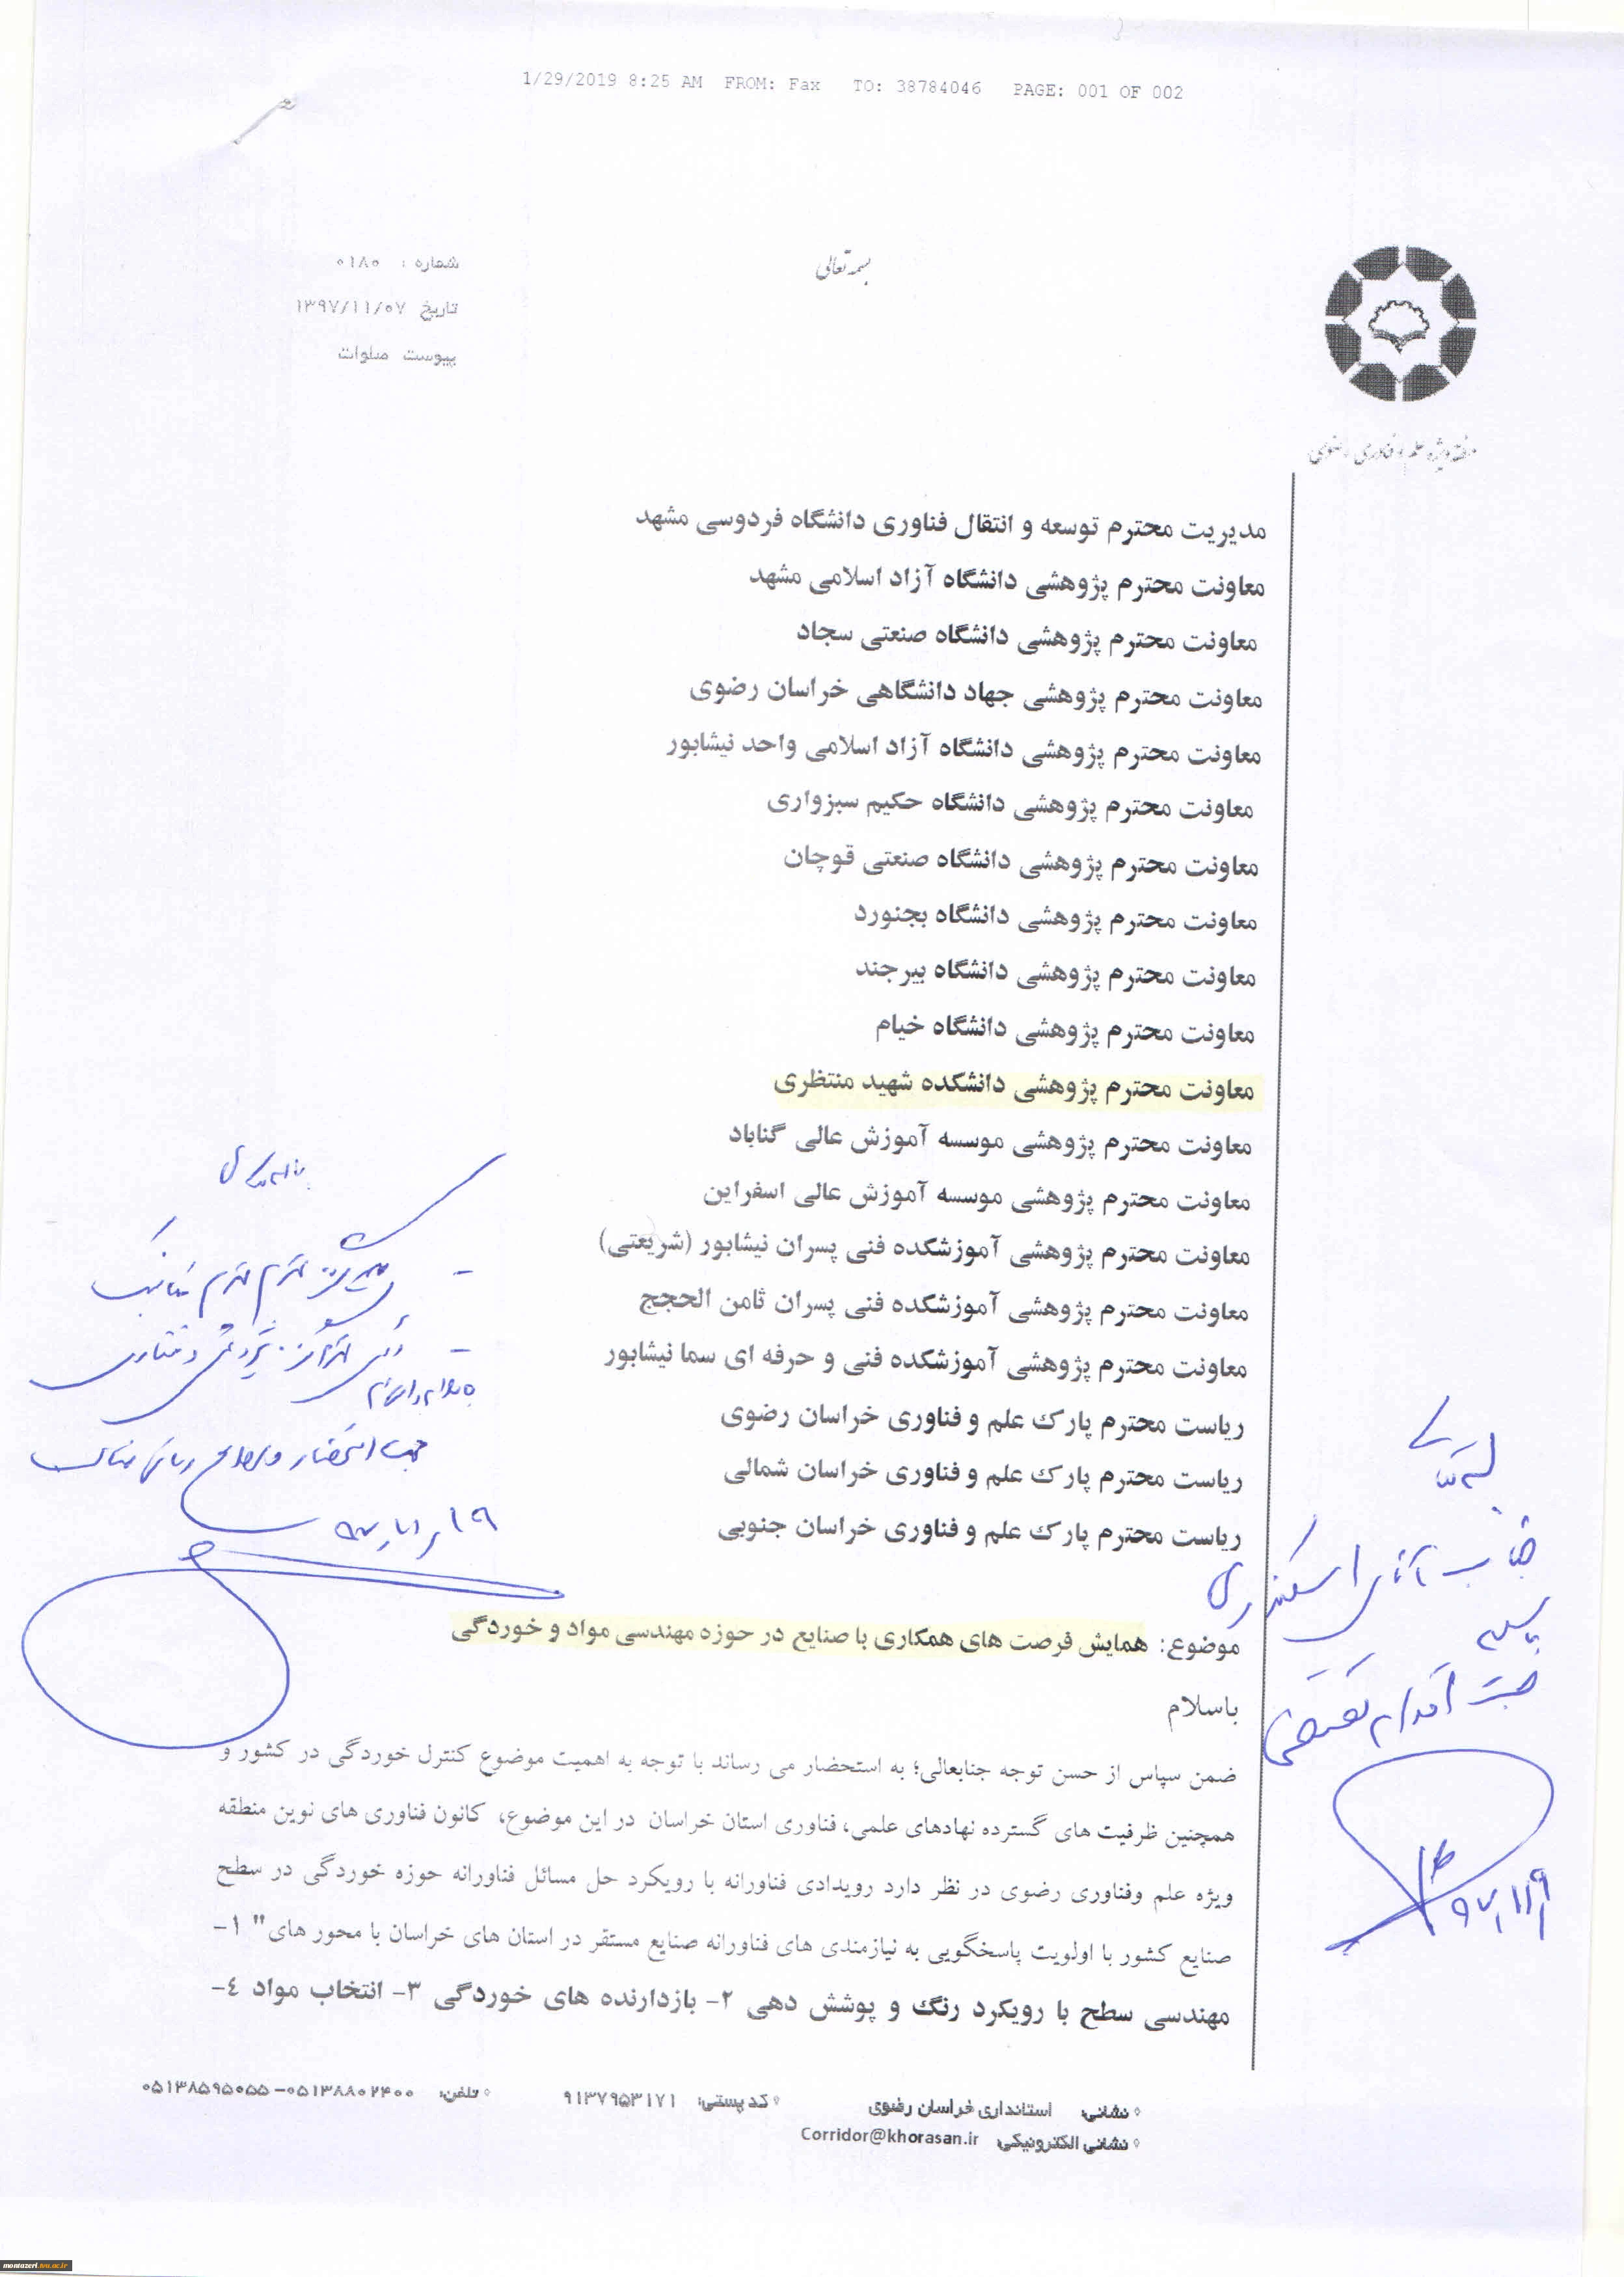 1/29/2019 8:25 AM FROM: Fax TO: 38784046 PAGE: 001 OF 002
بسمه تعالی
شماره : ۰۱۸۰
تاریخ ۱۳۹۷/۱۱/۰۷
پیوست صلوات
منطقه ویژه علم و فناوری رضوی
مدیریت محترم توسعه و انتقال فناوری دانشگاه فردوسی مشهد
معاونت محترم پژوهشی دانشگاه آزاد اسلامی مشهد
معاونت محترم پژوهشی دانشگاه صنعتی سجاد
معاونت محترم پژوهشی جهاد دانشگاهی خراسان رضوی
معاونت محترم پژوهشی دانشگاه آزاد اسلامی واحد نیشابور
معاونت محترم پژوهشی دانشگاه حکیم سبزواری
معاونت محترم پژوهشی دانشگاه صنعتی قوچان
معاونت محترم پژوهشی دانشگاه بجنورد
معاونت محترم پژوهشی دانشگاه بیرجند
معاونت محترم پژوهشی دانشگاه خیام
معاونت محترم پژوهشی دانشکده شهید منتظری
معاونت محترم پژوهشی موسسه آموزش عالی گناباد
معاونت محترم پژوهشی موسسه آموزش عالی اسفراین
معاونت محترم پژوهشی آموزشکده فنی پسران نیشابور (شریعتی)
معاونت محترم پژوهشی آموزشکده فنی پسران ثامن الحجج
معاونت محترم پژوهشی آموزشکده فنی و حرفه ای سما نیشابور
ریاست محترم پارک علم و فناوری خراسان رضوی
ریاست محترم پارک علم و فناوری خراسان شمالی
ریاست محترم پارک علم و فناوری خراسان جنوبی
جناب آقای اسکندری
جهت اقدام مقتضی
۹۷/۱۱/۹
موضوع: همایش فرصت های همکاری با صنایع در حوزه مهندسی مواد و خوردگی
باسلام
ضمن سپاس از حسن توجه جنابعالی؛ به استحضار می رساند با توجه به اهمیت موضوع کنترل خوردگی در کشور و
همچنین ظرفیت های گسترده نهادهای علمی، فناوری استان خراسان در این موضوع، کانون فناوری های نوین منطقه
ویژه علم وفناوری رضوی در نظر دارد رویدادی فناورانه با رویکرد حل مسائل فناورانه حوزه خوردگی در سطح
صنایع کشور با اولویت پاسخگویی به نیازمندی های فناورانه صنایع مستقر در استان های خراسان با محور های" ۱-
مهندسی سطح با رویکرد رنگ و پوشش دهی ۲- بازدارنده های خوردگی ۳- انتخاب مواد ٤-
نشانی: استانداری خراسان رضوی
کد پستی: ۹۱۳۷۹۵۳۱۷۱
تلفن: ۰۵۱۳۸۸۰۲۴۰۰-۰۵۱۳۸۵۹۵۰۵۵
نشانی الکترونیکی: Corridor@khorasan.ir
montazeri.tvu.ac.ir